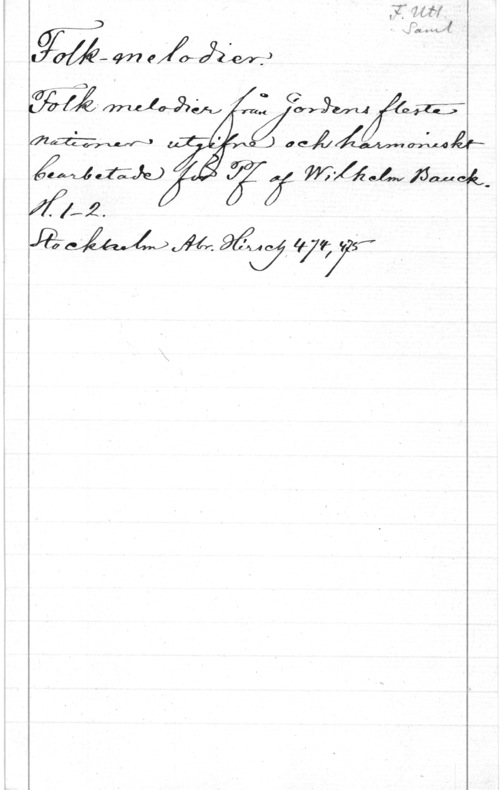 F. Utl.
Saml
Folk-melodier.
Folk melodier från Jordens flesta
nationer utgifna och harmoniskt
bearbetade för Pf af Wilhelm Bauck.
H. 1-2.
Stockholm Abr. Hirsch 474, 475